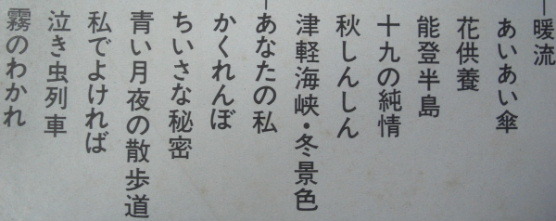 暖流
あいあい傘
花供養
能登半島
十九の純情
秋しんしん
津軽海峡・冬景色
あなたの私
かくれんぼ
ちいさな秘密
青い月夜の散歩道
私でよければ
泣き虫列車
霧のわかれ